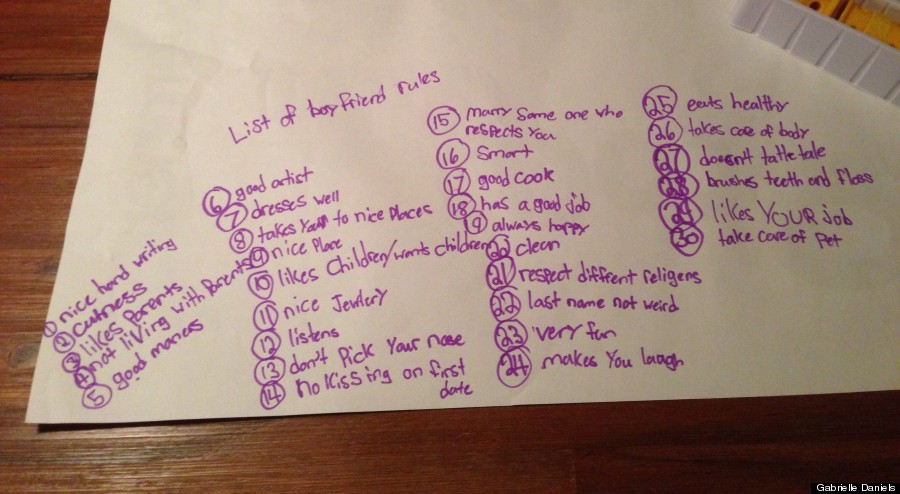 List of boyfriend rules
1 nice hand writing
2 cutness
3 likes Parents
4 not living with Parents
5 good maners
6 good artist
7 dresses well
8 takes Your to nice Places
9 nice Place
10 likes Children/wants children
11 nice Jewlery
12 listens
13 don't Pick Your nose
14 no kissing on first
date
15 marry some one who
respects You
16 Smart
17 good cook
18 has a good job
19 always happy
20 clean
21 respect diffrent religens
22 last name not weird
23 very fun
24 makes You laugh
25 eats healthy
26 takes care of body
27 doesn't tatte tale
28 brushes teeth and floss
29 likes YOUR job
30 take care of pet
Gabrielle Daniels